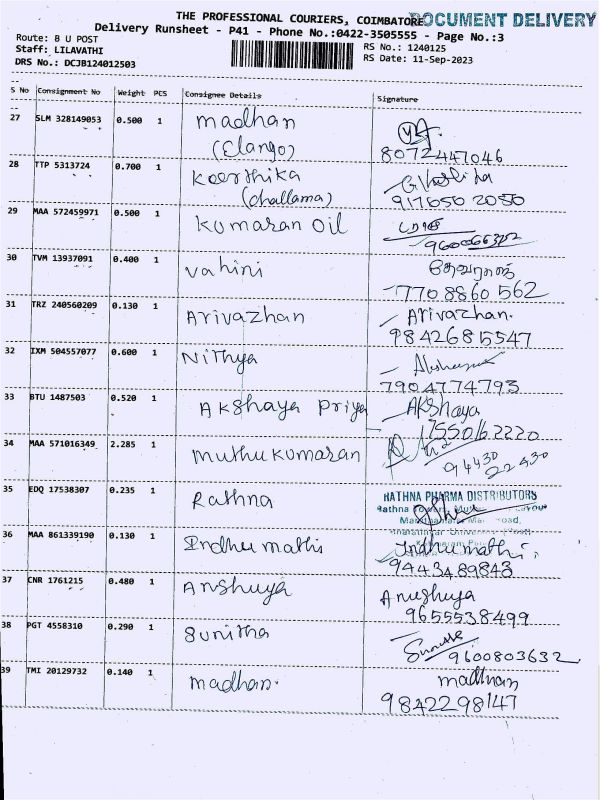 THE PROFESSIONAL COURIERS, COIMBATORE
DOCUMENT DELIVERY
Delivery Runsheet - P41 - Phone No.:0422-3505555 - Page No.:3
Route: 8 U POST
Staff: LILAVATHI
DRS No.: DCJB124012503
RS No.: 1240125
RS Date: 11-Sep-2023
S No Consignment No Weight PCS Consignee Details Signature
27 SLM 328149053 0.500 1 madhan
(Elango)
8072447046
28 TTP 5313724 0.700 1 Keerthika
(challama)
917650 2050
29 MAA 572459971 0.500 1 Kumaran oil
30 TVM 13937091 0.400 1 vahini
770 8860 562
31 TRZ 240560209 0.130 1 Arivazhan Arivazhan.
9842685547
32 IXM 504557077 0.600 1 Nithya
7904774793
33 BTU 1487503 0.520 1 Akshaya Priya AKshaya
7550162220
34 MAA 571016349 2.285 1 muthukumaran
94430
22430
35 EDQ 17538307 0.235 1 Rathna RATHNA PHARMA DISTRIBUTORS
36 MAA 861339190 0.130 1 Indhumathi Indhumathi.
9443489843
37 CNR 1761215 0.480 1 Anshuya Anushuya
9655538499
38 PGT 4558310 0.290 1 Sunitha
9600803632
39 TMI 20129732 0.140 1 madhan. madhan
9842298147